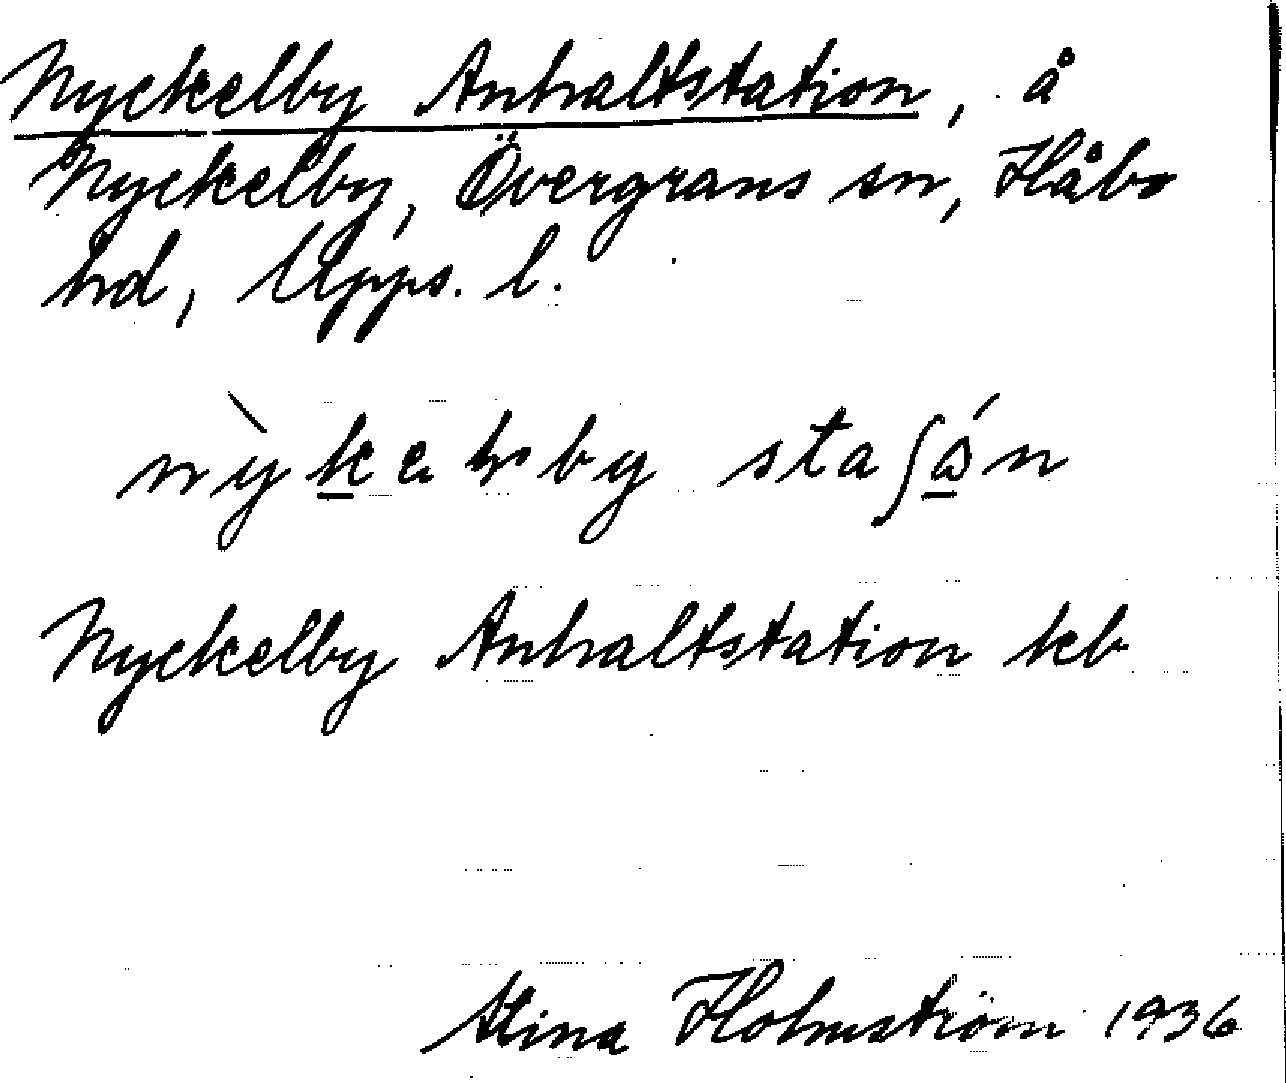 Nyckelby Anhaltstation, å
Nyckelby, Övergrans sn, Håbo
hd, Upps. l.
stașǻn
Nyckelby Anhaltstation kb
Stina Holmström 1936